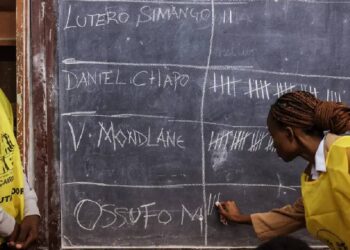 LUTERO SIMANGO
DANIEL CHAPO
V. MONDLANE
OSSUFO M